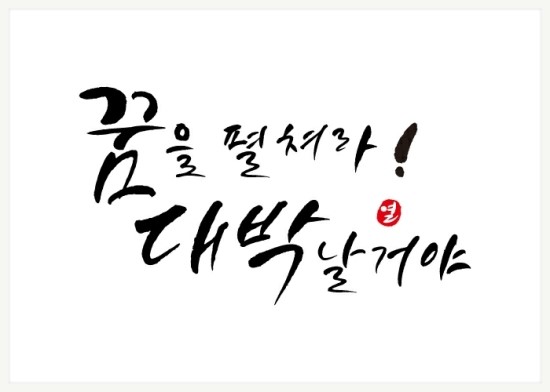 꿈을 펼쳐라!
대박날거야
열